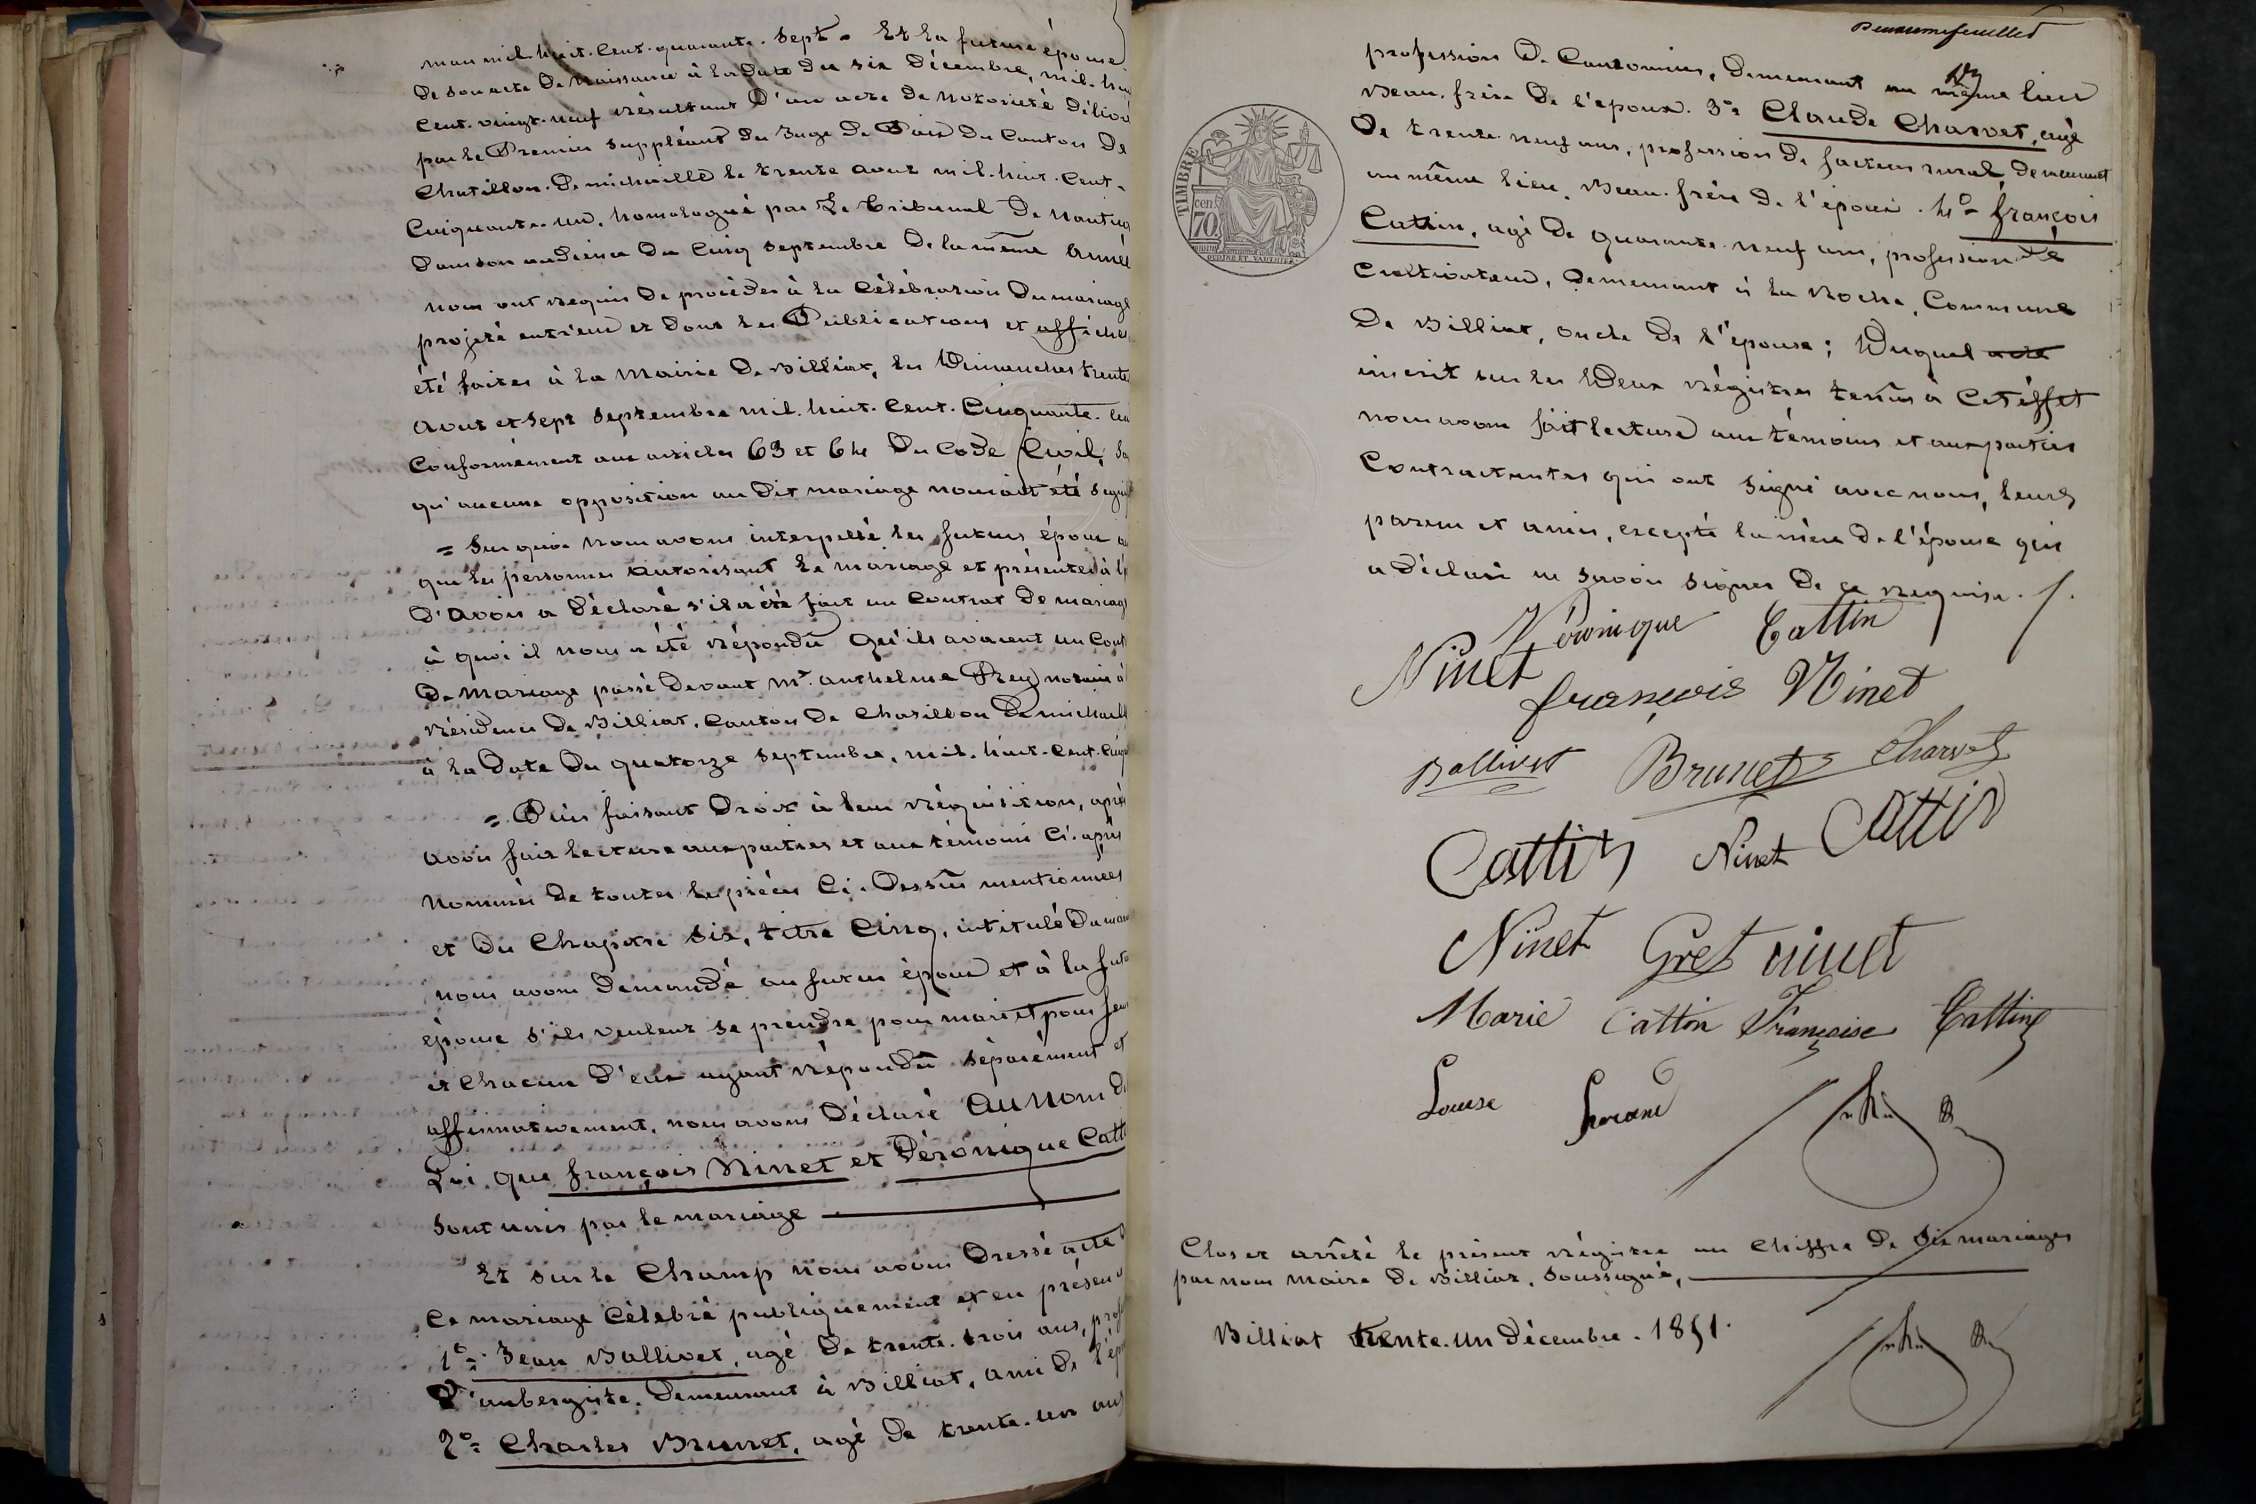 mars mil. huit. Cent. quarante. Sept. Et la future épouse
De son acte De Naissance à la Date du six Décembre, mil. hui
Cent. vingt. neuf Résultant D'un acte De Notoriété Délivré
par le Premier Suppléant du Juge De Paix Du Canton De
Chatillon. De michaille le trente aout mil. huit. Cent.
Cinquante. un, homologué par Le Tribunal De Nantua
Dans son audience Du Cinq Septembre De la même année
nous ont Requis De procéder à la Célébration Du mariage
projeté entr'eux et Dont les Publications et affiches
été faites à la Mairie De Billiat, les Dimanches trente
aout et Sept Septembre mil. huit. Cent. Cinquante.
Conformément aux articles 63 et 64 Du Code Civil,
qu'aucune opposition au Dit mariage nous ait été
= Sur quoi Nous avons interpellé les futurs époux
que les personnes autorisant le mariage et présentes à
D'avoir a Déclaré s'il a été fait un Contrat De mariage
à quoi il nous a été Répondu Qu'ils avaient un Cont
De Mariage passé Devant Mr. anthelme Rey notaire à
Résidence De Billiat, Canton De Chatillon De michaille
à la Date Du quatorze Septembre, mil. huit. Cent. Cinqu
= Puis faisant Droit à leur Réquisition, après
avoir fait lecture aux parties et aux témoins Ci. après
Nommés De toutes les pièces Ci. Dessus mentionnées
et Du Chapitre Six, titre Cinq, intitulé Du mar
nous avons Demandé au futur époux et à la futu
épouse s'ils veulent se prendre pour mari et pour fem
et Chacun D'eux ayant Répondu Séparément et
affirmativement, nous avons Déclaré Au Nom De
Loi, que François Ninet et Véronique Catt
Sont unis par le mariage
Et sur le Champ nous avons Dressé acte
Ce mariage Célébré publiquement et en présen
1º= Jean Ballivet, agé De trente. trois ans, prof
D'aubergiste. Demeurant à Billiat, ami De l'ép
2º= Charles Brunet, agé De trente. un ans
profession De Cantonnier, Demeurant au même lieu
Beau. frère De l'époux. 3º= Claude Charvet, agé
De trente. neuf ans, profession De facteur rural Demeurant
au même lieu, Beau. frère De l'époux. 4º= François
Cattin, agé De quarante. neuf ans, profession De
Cultivateur, Demeurant à la Roche, Commune
De Billiat, oncle De l'épouse; Duquel acte
inscrit sur les Deux Régistres tenus à Cet éffet
nous avons fait lecture aux témoins et aux parties
Contractantes qui ont Signé avec nous, leurs
parens et amis, excepté la mère De l'épouse qui
a Déclaré ne Savoir Signer De ce Requise.
TIMBRE
cen.
70
Véronique Cattin
Ninet
françois Ninet
Ballivet Brunet Charvet
Cattin Ninet Cattin
Ninet Gret Ninet
Marie Cattin Françoise Cattin
Louise
Clos et arrêté le présent Régistre au Chiffre De Six mariages
par nous Maire De Billiat, Soussigné,
Billiat trente. un Décembre. 1851.